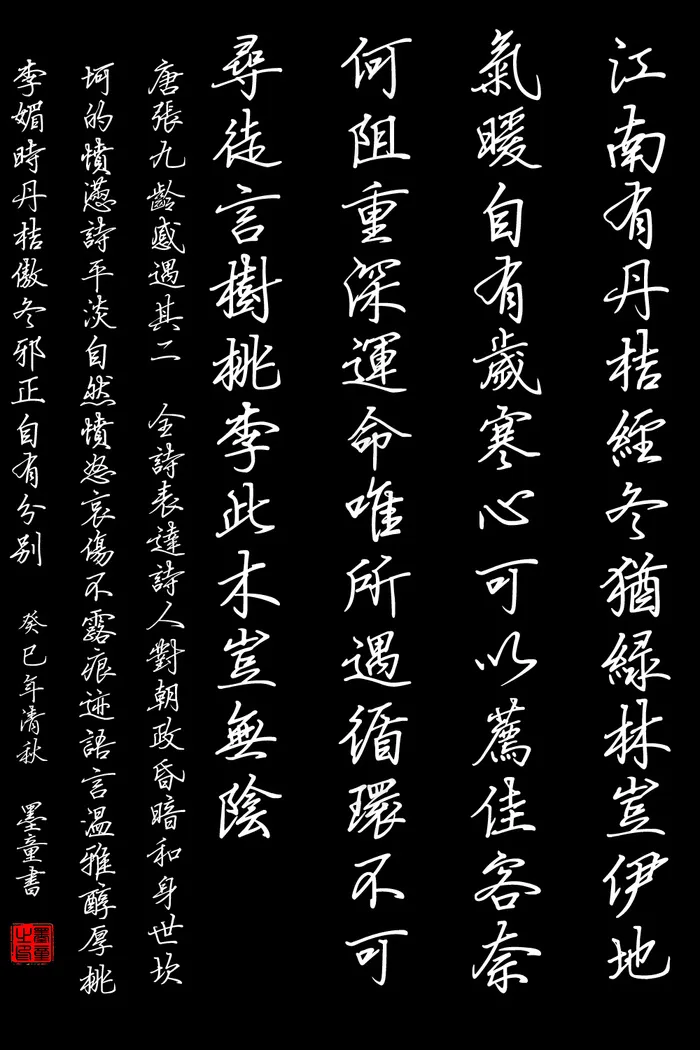 江南有丹桔經冬猶緑林豈伊地
氣暖自有歲寒心可以薦佳客奈
何阻重深運命唯所遇循環不可
尋徒言樹桃李此木豈無陰
唐張九齡感遇其二 全詩表達詩人對朝政昏暗和身世坎
坷的憤懣詩平淡自然憤怒哀傷不露痕迹語言温雅醇厚桃
李媚時丹桔傲冬邪正自有分别 癸巳年清秋 墨童書
墨童之印